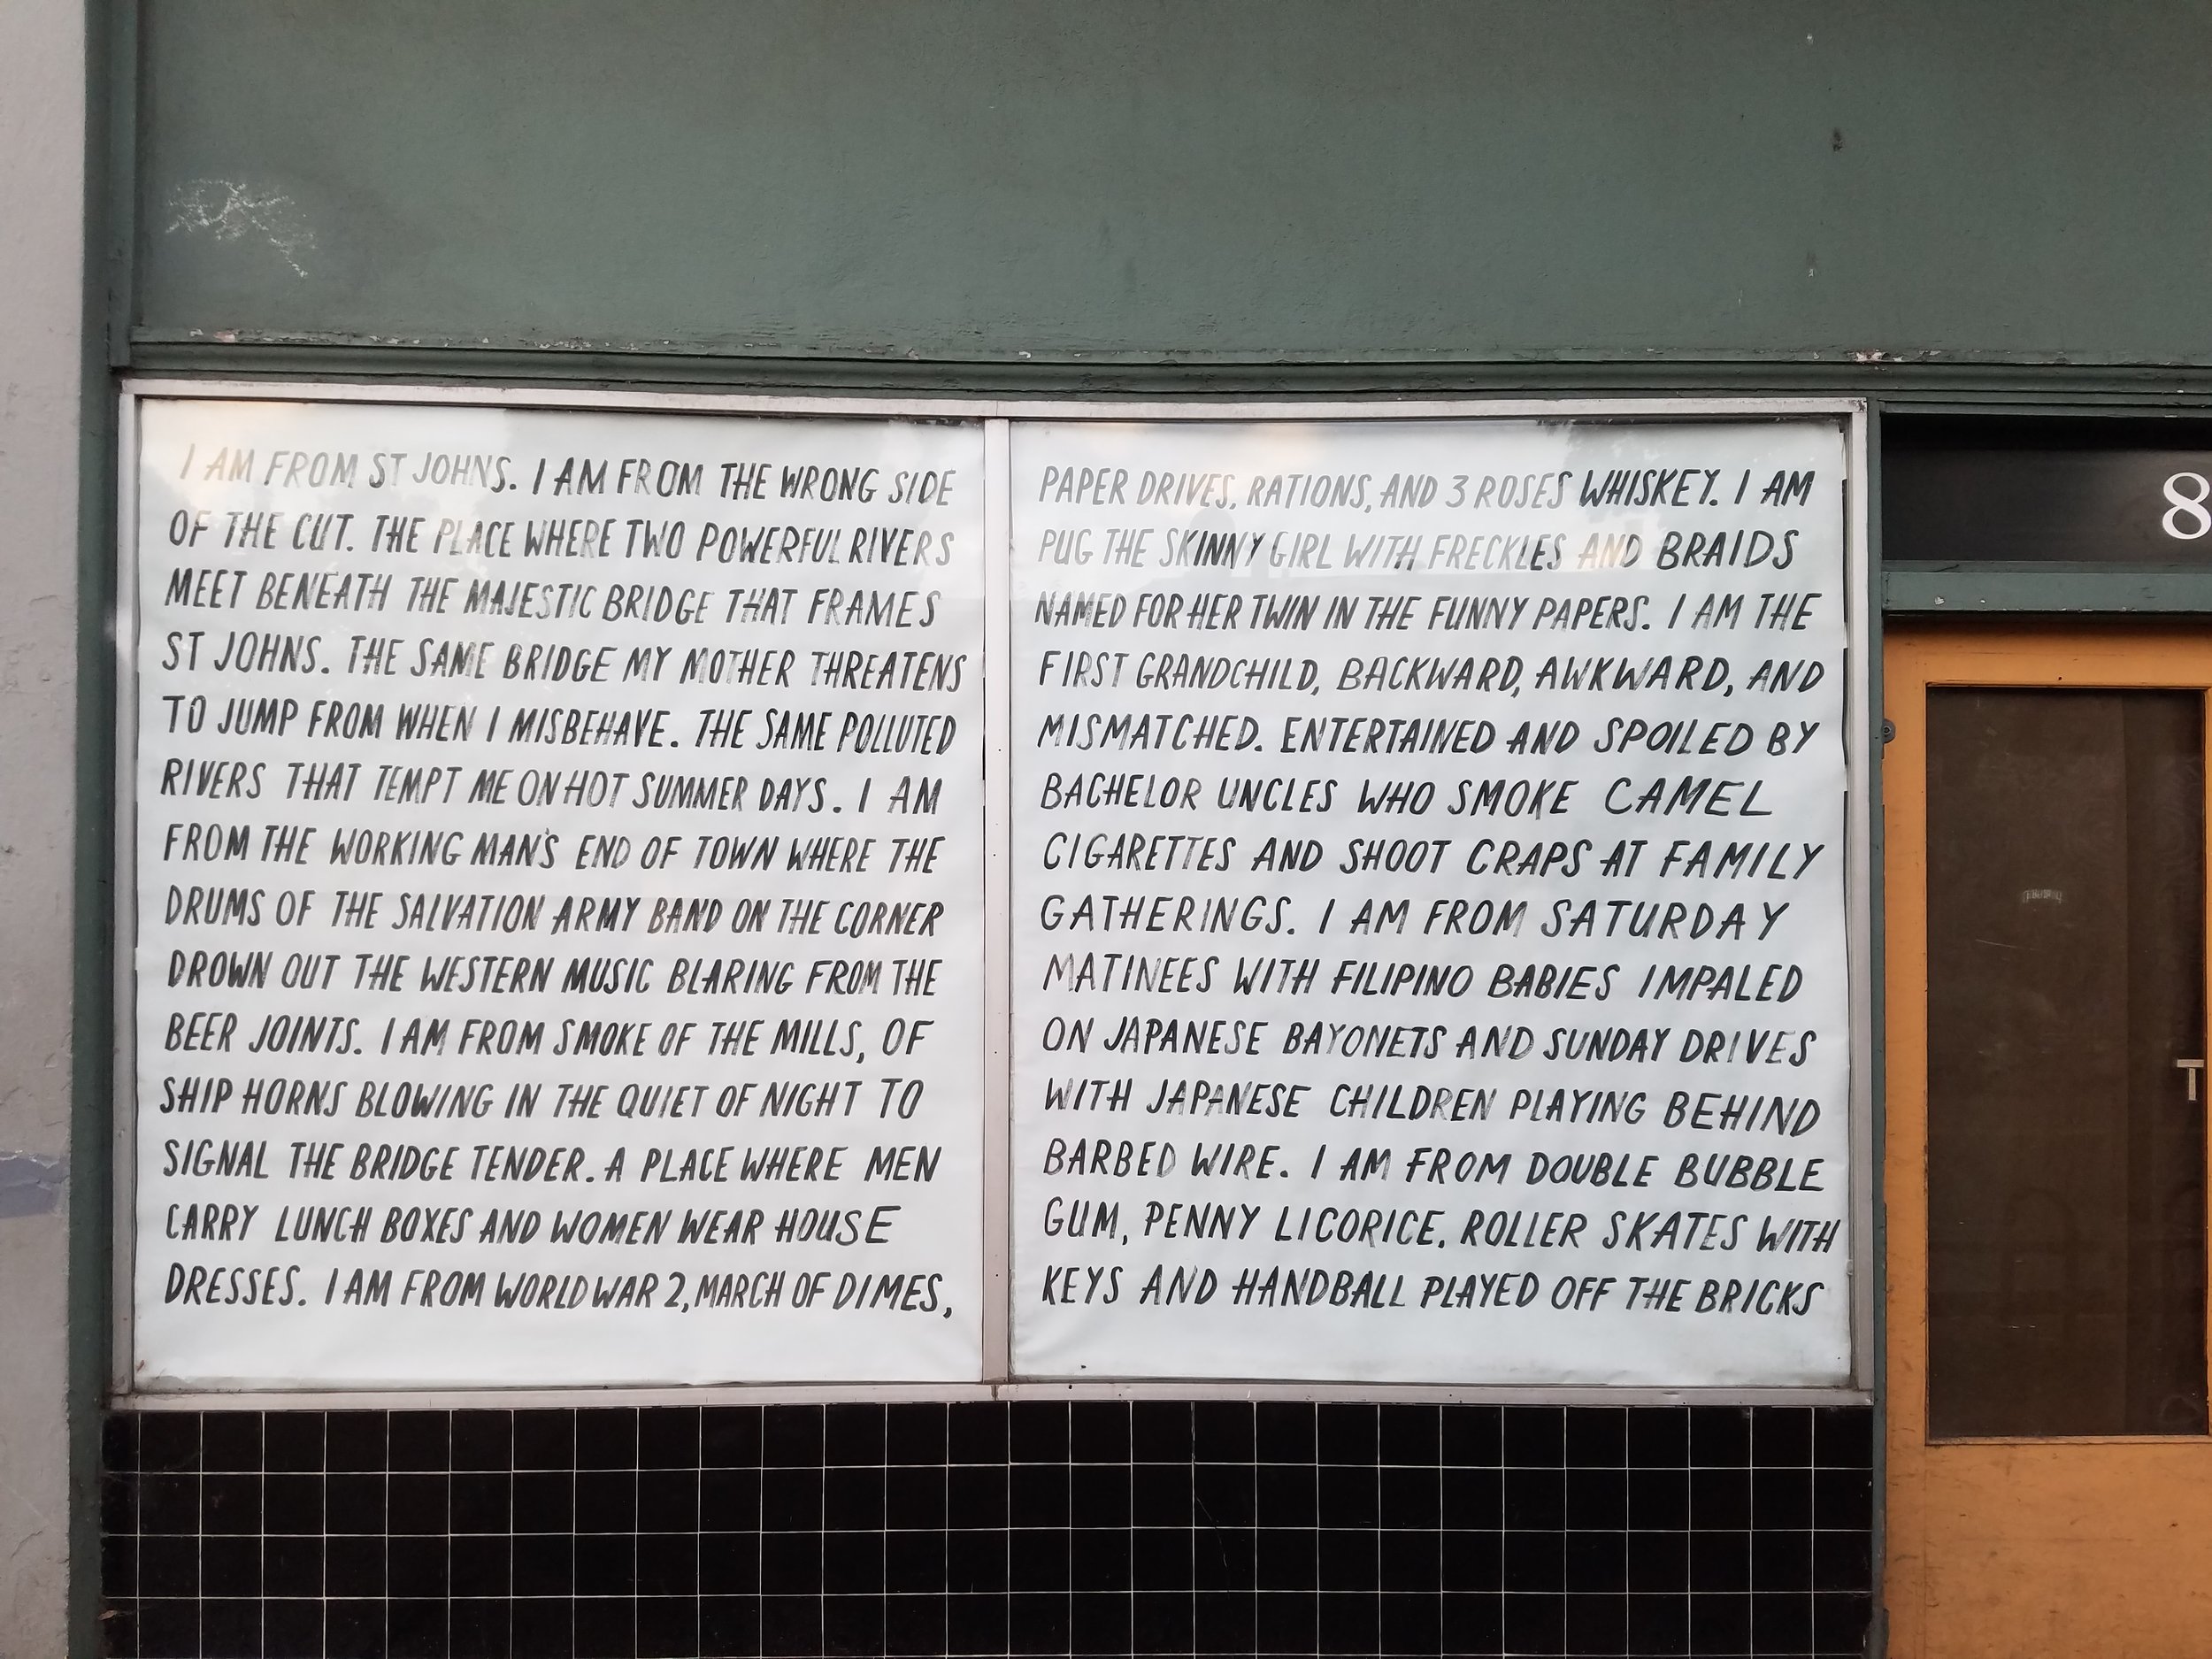 I AM FROM ST JOHNS. I AM FROM THE WRONG SIDE
OF THE CUT. THE PLACE WHERE TWO POWERFUL RIVERS
MEET BENEATH THE MAJESTIC BRIDGE THAT FRAMES
ST JOHNS. THE SAME BRIDGE MY MOTHER THREATENS
TO JUMP FROM WHEN I MISBEHAVE. THE SAME POLLUTED
RIVERS THAT TEMPT ME ON HOT SUMMER DAYS. I AM
FROM THE WORKING MAN'S END OF TOWN WHERE THE
DRUMS OF THE SALVATION ARMY BAND ON THE CORNER
DROWN OUT THE WESTERN MUSIC BLARING FROM THE
BEER JOINTS. I AM FROM SMOKE OF THE MILLS, OF
SHIP HORNS BLOWING IN THE QUIET OF NIGHT TO
SIGNAL THE BRIDGE TENDER. A PLACE WHERE MEN
CARRY LUNCH BOXES AND WOMEN WEAR HOUSE
DRESSES. I AM FROM WORLD WAR 2, MARCH OF DIMES,
PAPER DRIVES, RATIONS, AND 3 ROSES WHISKEY. I AM
PUG THE SKINNY GIRL WITH FRECKLES AND BRAIDS
NAMED FOR HER TWIN IN THE FUNNY PAPERS. I AM THE
FIRST GRANDCHILD, BACKWARD, AWKWARD, AND
MISMATCHED. ENTERTAINED AND SPOILED BY
BACHELOR UNCLES WHO SMOKE CAMEL
CIGARETTES AND SHOOT CRAPS AT FAMILY
GATHERINGS. I AM FROM SATURDAY
MATINEES WITH FILIPINO BABIES IMPALED
ON JAPANESE BAYONETS AND SUNDAY DRIVES
WITH JAPANESE CHILDREN PLAYING BEHIND
BARBED WIRE. I AM FROM DOUBLE BUBBLE
GUM, PENNY LICORICE. ROLLER SKATES WITH
KEYS AND HANDBALL PLAYED OFF THE BRICKS
8